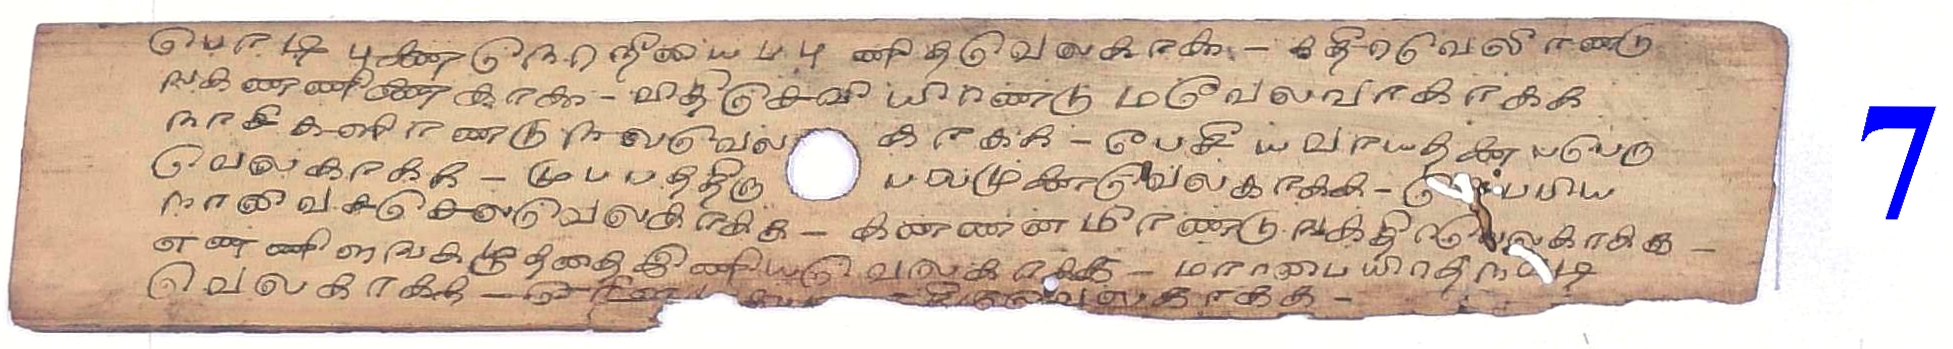 பொடி புணைடுநரநீயைபபு ணிதவெலகாகக - கதிரவெலிரணடு
ஙகணணிணை காகக - விதிசெவி யிரணடு மவெலவாகாகக
நாசிகளிரணடு நலவெல காகக - பெசியவாயதனைபபெரு
வெலகாகக - முபபததிரு பலமுனைவெலகாகக - செபபிய
நாவைசசெலவெலகாகக - கனனமிரணடு ஙகதிரவெலகாகக -
எனனிளஙகழுததைஇனியவெலகாகக - மாரபையிரதந வடி
வெலகாகக - வெலகாகக -
7